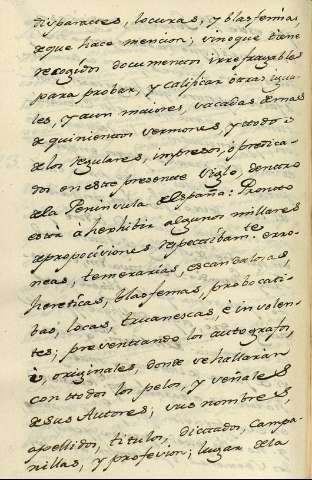 disparates, locuras, y blasfemias
de que hace mencion; sino que tiene
recogidos documentos irrefragables
para probar, y calificar otras igua-
les, y aun maiores, sacadas de mas
de quinientos sermones, y todos
de los regulares, impresos, ò predica-
dos en este presente siglo, dentro
de la Peninsula de España: Pronto
està à hexhibir algunos millares
de proposiciones respectibam.te erro-
neas, temerarias, escandalosas,
hereticas, blasfemas, probocati-
bas, locas, truanescas, è insolen-
tes; presentando los autografos,
ù, originales, donde se hallaran
con todos los pelos, y señales
de sus Autores; sus nombres,
apellidos, titulos, dictados, campa-
nillas, y profesion; lugar de la